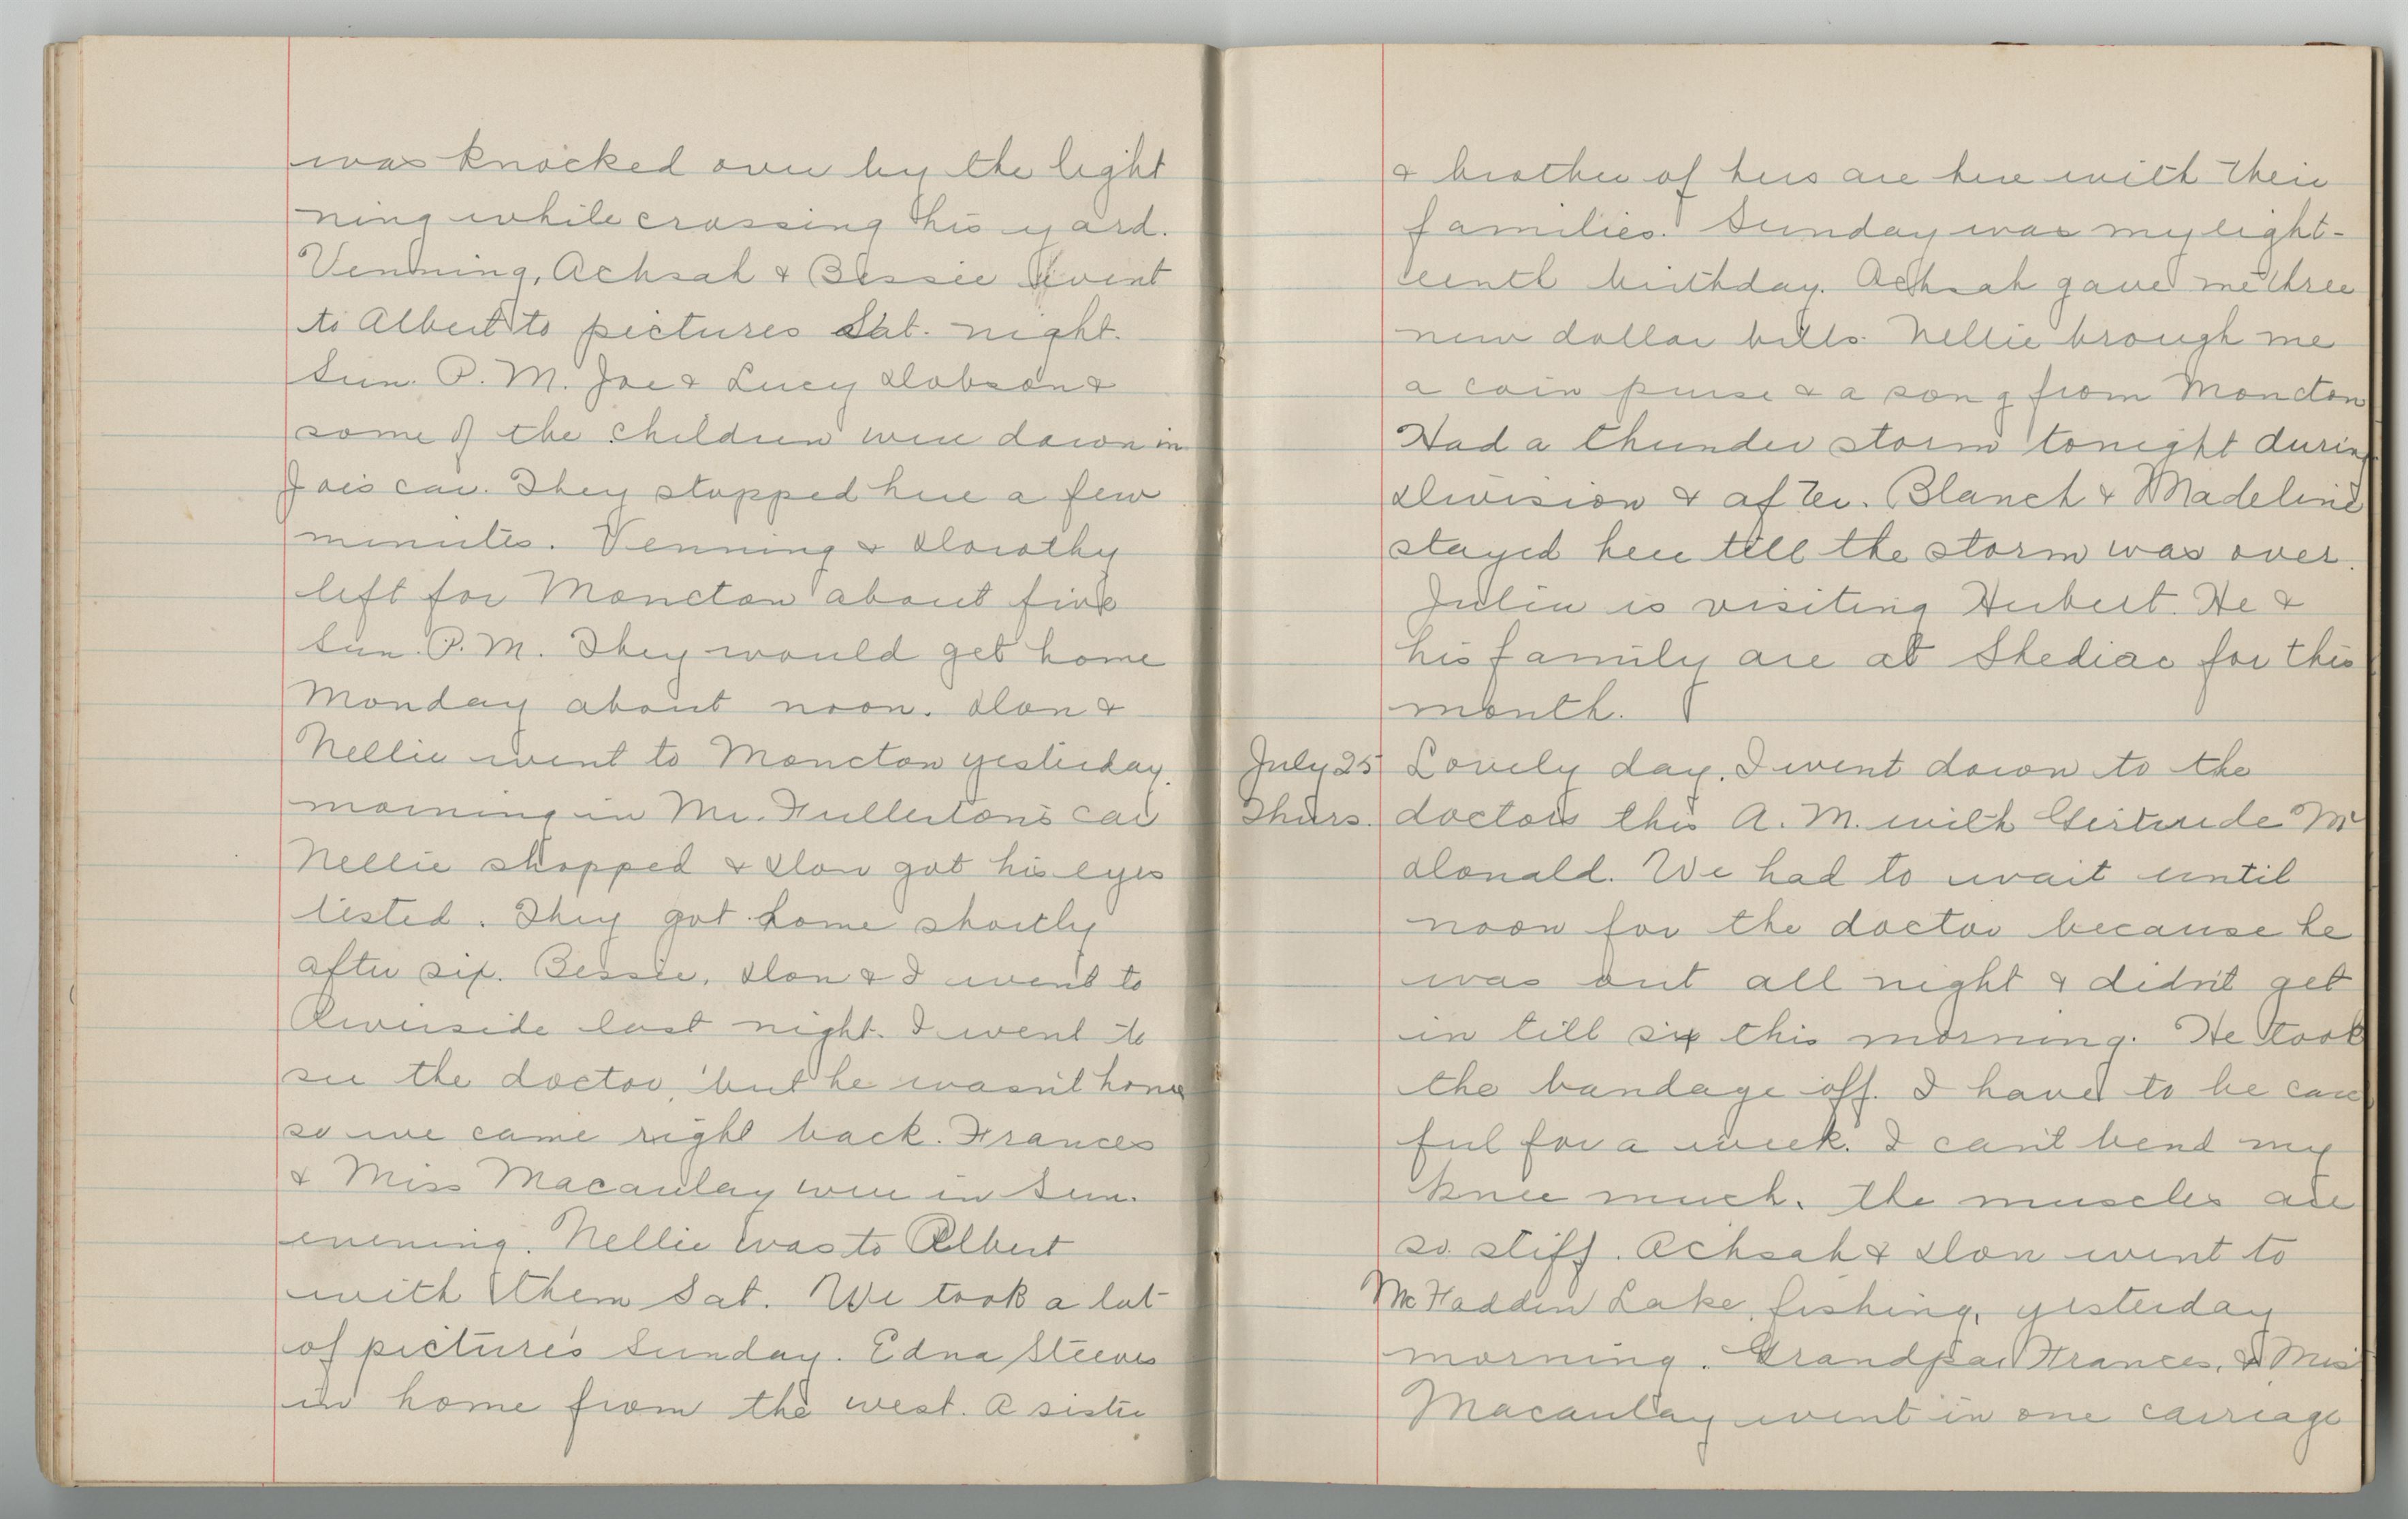 was knocked over by the light
ning while crossing his yard.
Venning, Achsah & Bessie went
to Albert to pictures Sat. night.
Sun. P. M. Joe & Lucy Dobson &
some of the children were down in
Joe's car. They stopped here a few
minutes. Venning & Dorothy
left for Moncton about five
Sun. P. M. They would get home
Monday about noon. Don &
Nellie went to Moncton yesterday
morning in Mr. Fullerton's car
Nellie shopped & Don got his eyes
tested. They got home shortly
after six. Bessie, Don & I went to
Riverside last night. I went to
see the doctor, but he wasn't home
so we came right back. Frances
& Miss Macaulay were in Sun.
evening. Nellie was to Albert
with them Sat. We took a lot
of pictures Sunday. Edna Steeves
is home from the west. A sister
& brother of hers are here with their
families. Sunday was my eight-
eenth birthday. Achsah gave me three
new dollar bills. Nellie brough me
a coin purse & a song from Moncton
Had a thunder storm tonight during
Division & after. Blanch & Madeline
stayed here till the storm was over.
Julia is visiting Hubert. He &
his family are at Shediac for this
month.
July 25 Lovely day. I went down to the
Thurs. doctors this A. M. with Gertrude Mc
Donald. We had to wait until
noon for the doctor because he
was out all night & didn't get
in till six this morning. He took
the bandage off. I have to be care
ful for a week. I can't bend my
knee much. the muscles are
so stiff. Achsah & Don went to
McFadden Lake, fishing, yesterday
morning. Grandpa, Frances, & Miss
Macaulay went in one carriage